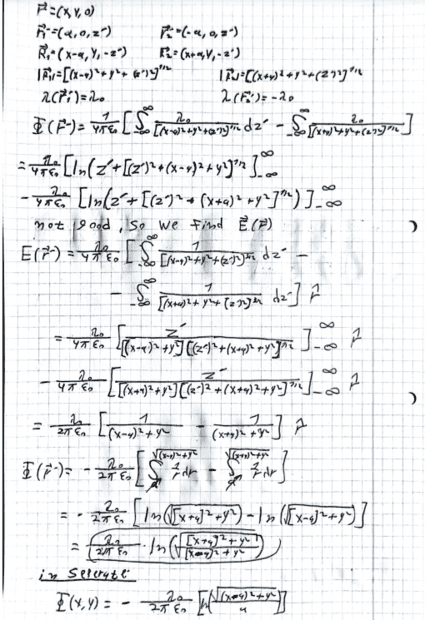 r⃗=(x,y,0)
r⃗₁´=(a,0,z´) r⃗₂´=(-a,0,z´)
R⃗₁=(x-a,y,-z´) R⃗₂=(x+a,y,-z´)
|R⃗₁|=[(x-a)²+y²+(z´)²]^{1/2} |R⃗₂|=[(x+a)²+y²+(z´)²]^{1/2}
λ(r⃗₁´)=λ₀ λ(r⃗₂´)=-λ₀
Φ(r⃗)= 1/4πε₀ [∫_{-∞}^{∞} λ₀/[(x-a)²+y²+(z´)²]^{1/2} dz´ - ∫_{-∞}^{∞} λ₀/[(x+a)²+y²+(z´)²]^{1/2}]
= λ₀/4πε₀ [ln(z´+[(z´)²+(x-a)²+y²]^{1/2}]_{-∞}^{∞}
- λ₀/4πε₀ [ln(z´+[(z´)²+(x+a)²+y²]^{1/2})]_{-∞}^{∞}
not good, so we find E⃗(r⃗)
E(r⃗)= λ₀/4πε₀ [∫_{-∞}^{∞} 1/[(x-a)²+y²+(z´)²]^{3/2} dz´ -
- ∫_{-∞}^{∞} 1/[(x+a)²+y²+(z´)²]^{3/2} dz´] r̂
= λ₀/4πε₀ [z´/[(x-a)²+y²][(z´)²+(x+a)²+y²]^{1/2}]_{-∞}^{∞} r̂
- λ₀/4πε₀ [z´/[(x+a)²+y²][(z´)²+(x+a)²+y²]^{1/2}]_{-∞}^{∞} r̂
= λ₀/2πε₀ [1/(x-a)²+y² - 1/(x+a)²+y²] r̂
Φ(r⃗)= - λ₀/2πε₀ [∫^{√(x-a)²+y²} 1/r dr - ∫^{√(x+a)²+y²} 1/r dr]
= - λ₀/2πε₀ [ln(√[x+a]²+y²) - ln(√[x-a]²+y²)]
= λ₀/2πε₀ · ln(√([x+a]²+y²/[x-a]²+y²))
in Seterate
Φ(x,y) = - λ₀/2πε₀ [ln √(x-a)²+y²/a]